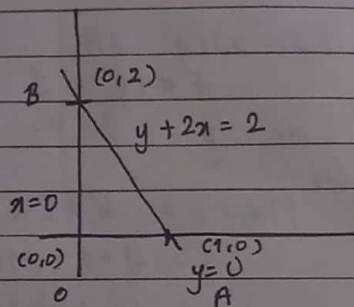 (0,2)
B
y + 2x = 2
x=0
(0,0)
(1,0)
y=0
O
A